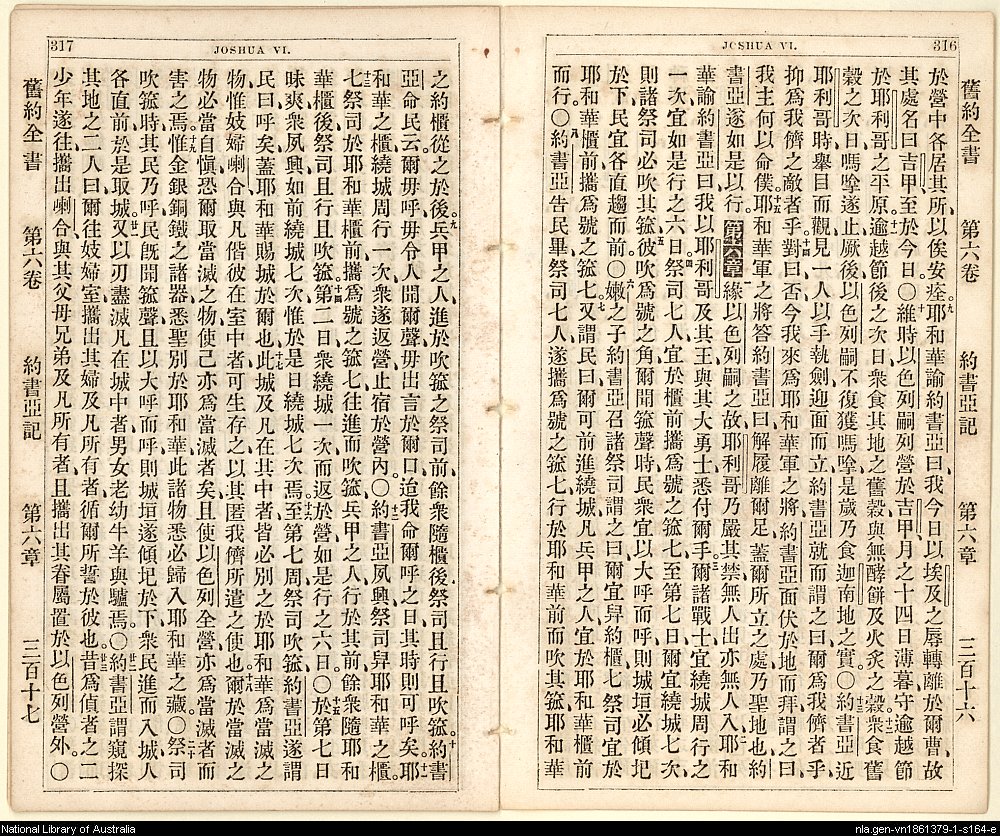 316
JOSHUA VI.
舊約全書 第六卷 約書亞記 第六章 三百十六
於營中各居其所以俟安痊。九耶和華諭約書亞曰、我今日以埃及之辱轉離於爾曹、故
其處名曰吉甲、至於今日。○十維時以色列嗣列營於吉甲、月之十四日薄暮守逾越節
於耶利哥之平原、逾越節後之次日、衆食其地之舊穀、與無酵餅、及火炙之穀、衆食舊
穀之次日、嗎嗱遂止、厥後以色列嗣不復獲嗎嗱、是歲乃食迦南地之實。○十三約書亞近
耶利哥時、舉目而觀、見一人以手執劍、迎面而立、約書亞就而謂之曰、爾爲我儕者乎、
抑爲我儕之敵者乎、十四對曰、否、今我來爲耶和華軍之將、約書亞面伏於地而拜、謂之曰、
我主何以命僕。十五耶和華軍之將答約書亞曰、解履離爾足、蓋爾所立之處、乃聖地也、約
書亞遂如是以行。 第六章 一緣以色列嗣之故、耶利哥乃嚴其禁、無人出、亦無人入、二耶和
華諭約書亞曰、我以耶利哥及其王與其大勇士、悉付爾手。三爾諸戰士宜繞城周行之
一次、宜如是行之六日。四祭司七人宜於櫃前攜爲號之箛七、至第七日、爾宜繞城七次、
則諸祭司必吹其箛。五彼吹爲號之角、爾聞箛聲時、民衆宜以大呼而呼、則城垣必傾圮
於下、民宜各直趨而前。○六嫩之子約書亞召諸祭司謂之曰、爾宜舁約櫃、七祭司宜於
耶和華櫃前、攜爲號之箛七。七又謂民曰、爾可前進繞城、凡兵甲之人、宜於耶和華櫃前
而行。○八約書亞告民畢、祭司七人遂攜爲號之箛七、行於耶和華前、而吹其箛、耶和華
317
JOSHUA VI.
舊約全書 第六卷 約書亞記 第六章 三百十七
之約櫃從之於後。九兵甲之人、進於吹箛之祭司前、餘衆隨櫃後、祭司且行且吹箛。十約書
亞命民云、爾毋呼、毋令人聞爾聲、毋出言於爾口、迨我命爾呼之日、其時則可呼矣。十一耶
和華之櫃繞城周行一次、衆遂返營、止宿於營內。○十二約書亞夙興、祭司舁耶和華之櫃。
十三七祭司於耶和華櫃前、攜爲號之箛七、往進而吹箛、兵甲之人行於其前、餘衆隨耶和
華櫃後、祭司且行且吹箛。十四第二日衆繞城一次、而返於營、如是行之六日。○十五於第七日
昧爽、衆夙興、如前繞城七次、惟於是日繞城七次焉。十六至第七周、祭司吹箛、約書亞遂謂
民曰、呼矣、蓋耶和華賜城於爾也。十七此城及凡在其中者、皆必別之於耶和華、爲當滅之
物、惟妓婦喇合、與凡偕彼在室中者、可生存之、以其匿我儕所遣之使也。十八爾於當滅之
物、必當自慎、恐爾取當滅之物、使己亦爲當滅者矣、且使以色列全營亦爲當滅者、而
害之焉。十九惟金銀銅鐵之諸器、悉聖別於耶和華、此諸物悉必歸入耶和華之藏。○二十祭司
吹箛時、其民乃呼、民既聞箛聲、且以大呼而呼、則城垣遂傾圮於下、衆民進而入城、人
各直前、於是取城。廿一又以刃盡滅凡在城中者、男女老幼牛羊與驢焉。○廿二約書亞謂窺探
其地之二人曰、爾往妓婦室、攜出其婦及凡所有者、循爾所誓於彼也。廿三昔爲偵者之二
少年遂往、攜出喇合、與其父母兄弟及凡所有者、且攜出其眷屬、置於以色列營外。○
National Library of Australia
nla.gen-vn1861379-1-s164-e